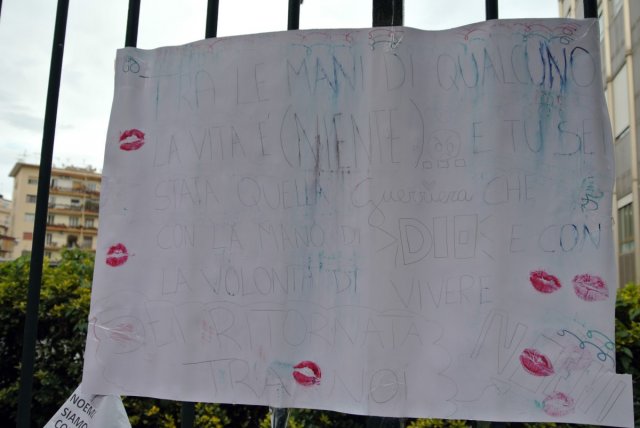 TRA LE MANI DI QUALCUNO
LA VITA É (NIENTE) E TU SE
STATA QUELLA Guerriera CHE
CON LA MANO DI DIO E CON
LA VOLONTÀ DI VIVERE
RITORNATA
TRA NOI
NOEMI
SIAMO
CO